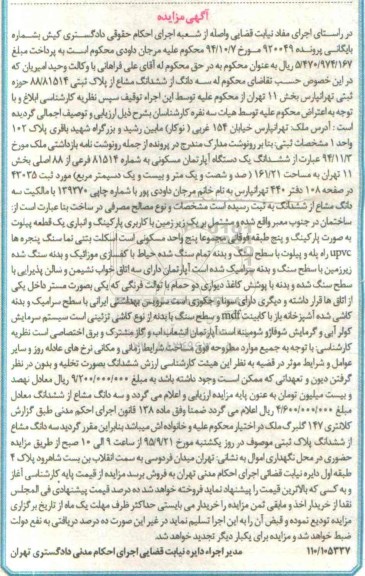 آگهی مزایده
در راستای اجرای مفاد نیابت قضایی واصله از شعبه اجرای احکام حقوقی دادگستری کیش بشماره
بایگانی پرونده ۹۲۰۰۴۹ مورخ ۹۴/۱۰/۷ محکوم علیه مرجان داودی محکوم است به پرداخت مبلغ
۵/۴۷۰/۹۷۴/۱۶۷ ریال به عنوان محکوم به در حق محکوم له آقای علی فراهانی با وکالت وحید امیریان که
در این خصوص حسب تقاضای محکوم له سه دانگ از ششدانگ مشاع از پلاک ثبتی ۸۸/۸۱۵۱۴ حوزه
ثبتی تهرانپارس بخش ۱۱ تهران از محکوم علیه توسط این اجراء توقیف سپس نظریه کارشناسی ابلاغ و با
توجه به اعتراض محکوم علیه توسط هیات سه نفره کارشناسان بشرح ذیل ارزیابی و توصیف اجمالی گردیده
است: آدرس ملک تهرانپارس خیابان ۱۵۴ غربی (نوکار) مابین رشید و بزرگراه شهید باقری پلاک ۱۰۲
واحد ۱ مشخصات ثبتی: بنا بر رونوشت مدارک مندرج در پرونده از جمله رونوشت نامه بازداشتی ملک مورخ
۹۴/۱۱/۳ عبارت از ششدانگ یک دستگاه آپارتمان مسکونی به شماره ۸۱۵۱۴ فرعی از ۸۸ اصلی بخش
۱۱ تهران به مساحت ۱۶۱/۲۱ (صد و شصت و یک متر و بیست و یک دسیمتر مربع) مورد ثبت ۴۲۰۳۵
در صفحه ۱۰۸ دفتر ۴۴۰ تهرانپارس به نام خانم مرجان داودی پور با شماره چاپی ۱۳۹۳۷۰ با مالکیت سه
دانگ مشاع از ششدانگ به ثبت رسیده است مشخصات و نوع مصالح مصرفی در ساخت بنا عبارت است از:
ساختمان در جنوب معبر واقع شده و مشتمل بر یک زیر زمین با کاربری پارکینگ و انباری یک قطعه پیلوت
به صورت پارکینگ و پنج طبقه فوقانی مجموعا پنج واحد مسکونی است اسکلت بتنی نما سنگ پنجره ها
upvc راه پله و پیلوت با سطح سنگ و بدنه تمام سنگ شده حیاط با کفسازی موزائیک و بدنه سنگ شده
زیرزمین با سطح سنگ و بدنه سرامیک شده است آپارتمان دارای سه اتاق خواب نشیمن و سالن پذیرایی با
سطح سنگ شده و بدنه با پوشش کاغذ دیواری دو حمام با توالت فرنگی که یکی بصورت مستر داخل یکی
از اتاق ها قرار داشته و دیگری دارای سونا و جکوزی است سرویس بهداشتی ایرانی با سطح سرامیک و بدنه
کاشی شده آشپزخانه باز با کابینت mdf و سطح سنگ با بدنه از نوع کاشی تزئینی است سیستم سرمایش
کولر آبی و گرمایش شوفاژ و شومینه است آپارتمان انشعاب آب و گاز مشترک و برق اختصاصی است نظریه
کارشناسی: با توجه به جمیع موارد مطروحه فوق شناخت شرایط زمانی و مکانی نرخ های عادله روز و سایر
عوامل و شرایط موثر در قضیه به نظر این هیئت کارشناسی ارزش ششدانگ بصورت تخلیه و بدون در نظر
گرفتن دیون و تعهداتی که ممکن است وجود داشته باشد به مبلغ ۹/۲۰۰/۰۰۰/۰۰۰ ریال معادل نهصد
و بیست میلیون تومان به عنوان پایه مزایده ارزیابی و اعلام می گردد و سه دانگ مشاع از ششدانگ معادل
مبلغ ۴/۶۰۰/۰۰۰/۰۰۰ ریال اعلام می گردد ضمنا وفق ماده ۱۳۸ قانون اجرای احکم مدنی طبق گزارش
کلانتری ۱۴۷ گلبرگ ملک در اختیار محکوم علیه و خانواده اش میباشد بنابراین مقرر گردید سه دانگ مشاع
از ششدانگ پلاک ثبتی موصوف در روز یکشنبه مورخ ۹۵/۹/۲۱ از ساعت ۹ الی ۱۰ صبح از طریق مزایده
حضوری در محل نگهداری اموال به نشانی: تهران میدان فردوسی به سمت انقلاب بن بست شاهرود پلاک ۴
طبقه اول دایره نیابت قضائی اجرای احکام مدنی تهران به فروش برسد مزایده از قیمت پایه کارشناسی آغاز
و به کسی که بالاترین قیمت را پیشنهاد نماید فروخته خواهد شد ده درصد قیمت پیشنهادی فی المجلس
نقدا از خریدار اخذ و مابقی ثمن مزایده را خریدار می بایستی حداکثر ظرف مهلت یک ماه از تاریخ برگزاری
مزایده تودیع نموده و قبض آن را به این اجرا تسلیم نماید در غیر این صورت ده درصد دریافتی به نفع دولت
ضبط خواهد شد و مزایده برای یکبار دیگر تجدید خواهد شد.
۱۱۰/۱۰۵۳۲۷ مدیر اجراء دایره نیابت قضایی اجرای احکام مدنی دادگستری تهران